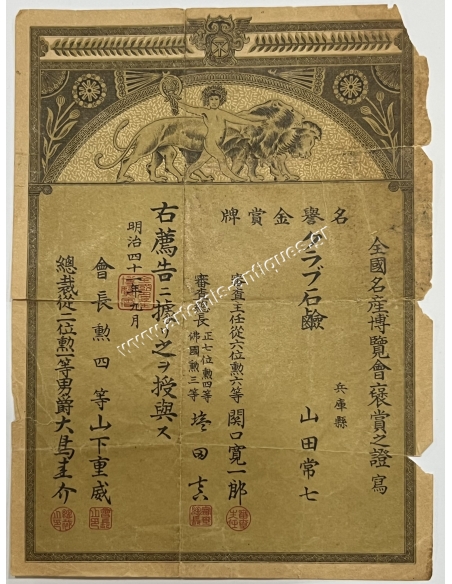 全國名産博覽會褒賞之證 寫
名譽金賞牌
クラブ石鹼
兵庫縣
山田常七
審査主任從六位勲六等 関口寛一郎
審査 長 正七位勲四等
佛國勲三等 塩田真
右薦告ニ據リ之ヲ授與ス
明治四十 年九月
會長勲四等山下重威
總裁從二位勲一等男爵大鳥圭介